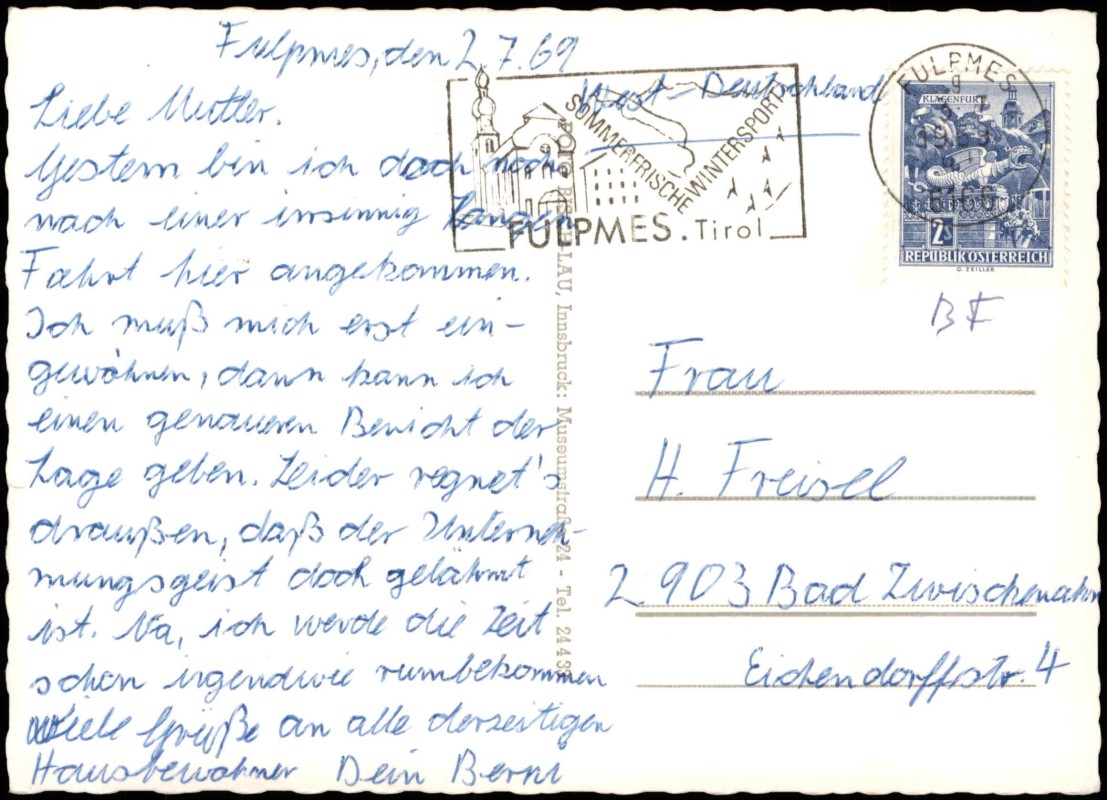 Fulpmes, den 2.7.69
Liebe Mutter.
Gestern bin ich doch noch
nach einer irrsinnig langen
Fahrt hier angekommen.
Ich muß mich erst ein-
gewöhnen, dann kann ich
einen genaueren Bericht der
Lage geben. Leider regnet's
draußen, daß der Unterneh-
mungsgeist doch gelähmt
ist. Na, ich werde die Zeit
schon irgendwie rumbekommen
Viele Grüße an alle derzeitigen
Hausbewohner Dein Bernt
West-Deutschland
SOMMERFRISCHE WINTERSPORT
FULPMES. Tirol
FULPMES
1969
6166
KLAGENFURT
2S
REPUBLIK ÖSTERREICH
O. ZEILLER
BF
LAU, Innsbruck: Museumstraße 24 - Tel. 24 4 3
Frau
H. Freisel
2903 Bad Zwischenahn
Eichendorffstr. 4